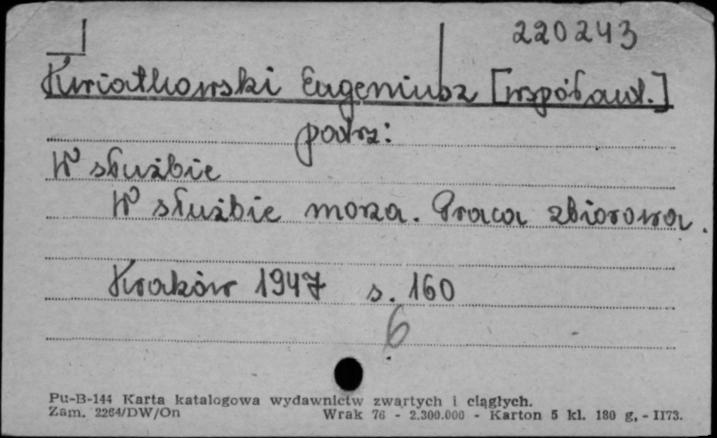 220243
Kwiatkowski Eugeniusz [współaut.]
patrz:
W służbie
W służbie morza. Praca zbiorowa.
Kraków 1947 s. 160
6
Pu-B-144 Karta katalogowa wydawnictw zwartych i ciągłych.
Zam. 2264/DW/On Wrak 76 - 2.300.000 - Karton 5 kl. 180 g, - II73.